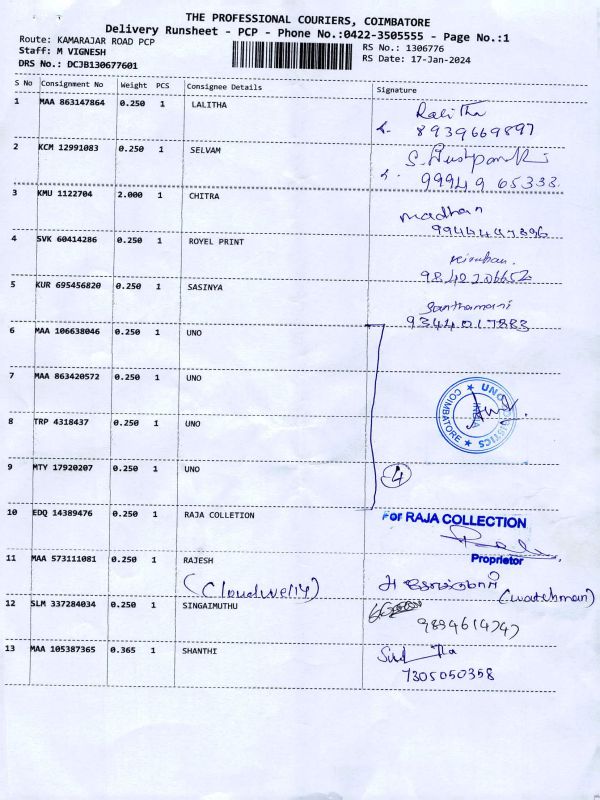 THE PROFESSIONAL COURIERS, COIMBATORE
Delivery Runsheet - PCP - Phone No.:0422-3505555 - Page No.:1
Route: KAMARAJAR ROAD PCP
Staff: M VIGNESH
DRS No.: DCJB130677601
RS No.: 1306776
RS Date: 17-Jan-2024
S No Consignment No Weight PCS Consignee Details Signature
1 MAA 863147864 0.250 1 LALITHA Lalitha
8939669897
2 KCM 12991083 0.250 1 SELVAM
99949 65333
3 KMU 1122704 2.000 1 CHITRA madhan
4 SVK 60414286 0.250 1 ROYEL PRINT
9842206652
5 KUR 695456820 0.250 1 SASINYA Santhamani
9344017883
6 MAA 106638046 0.250 1 UNO
7 MAA 863420572 0.250 1 UNO
UNO LOGISTICS ★ COIMBATORE ★
8 TRP 4318437 0.250 1 UNO
9 MTY 17920207 0.250 1 UNO 4
10 EDQ 14389476 0.250 1 RAJA COLLETION For RAJA COLLECTION
Proprietor
11 MAA 573111081 0.250 1 RAJESH
(Cloudwelly) (watchman)
12 SLM 337284034 0.250 1 SINGAIMUTHU
9894614747
13 MAA 105387365 0.365 1 SHANTHI
7305050358